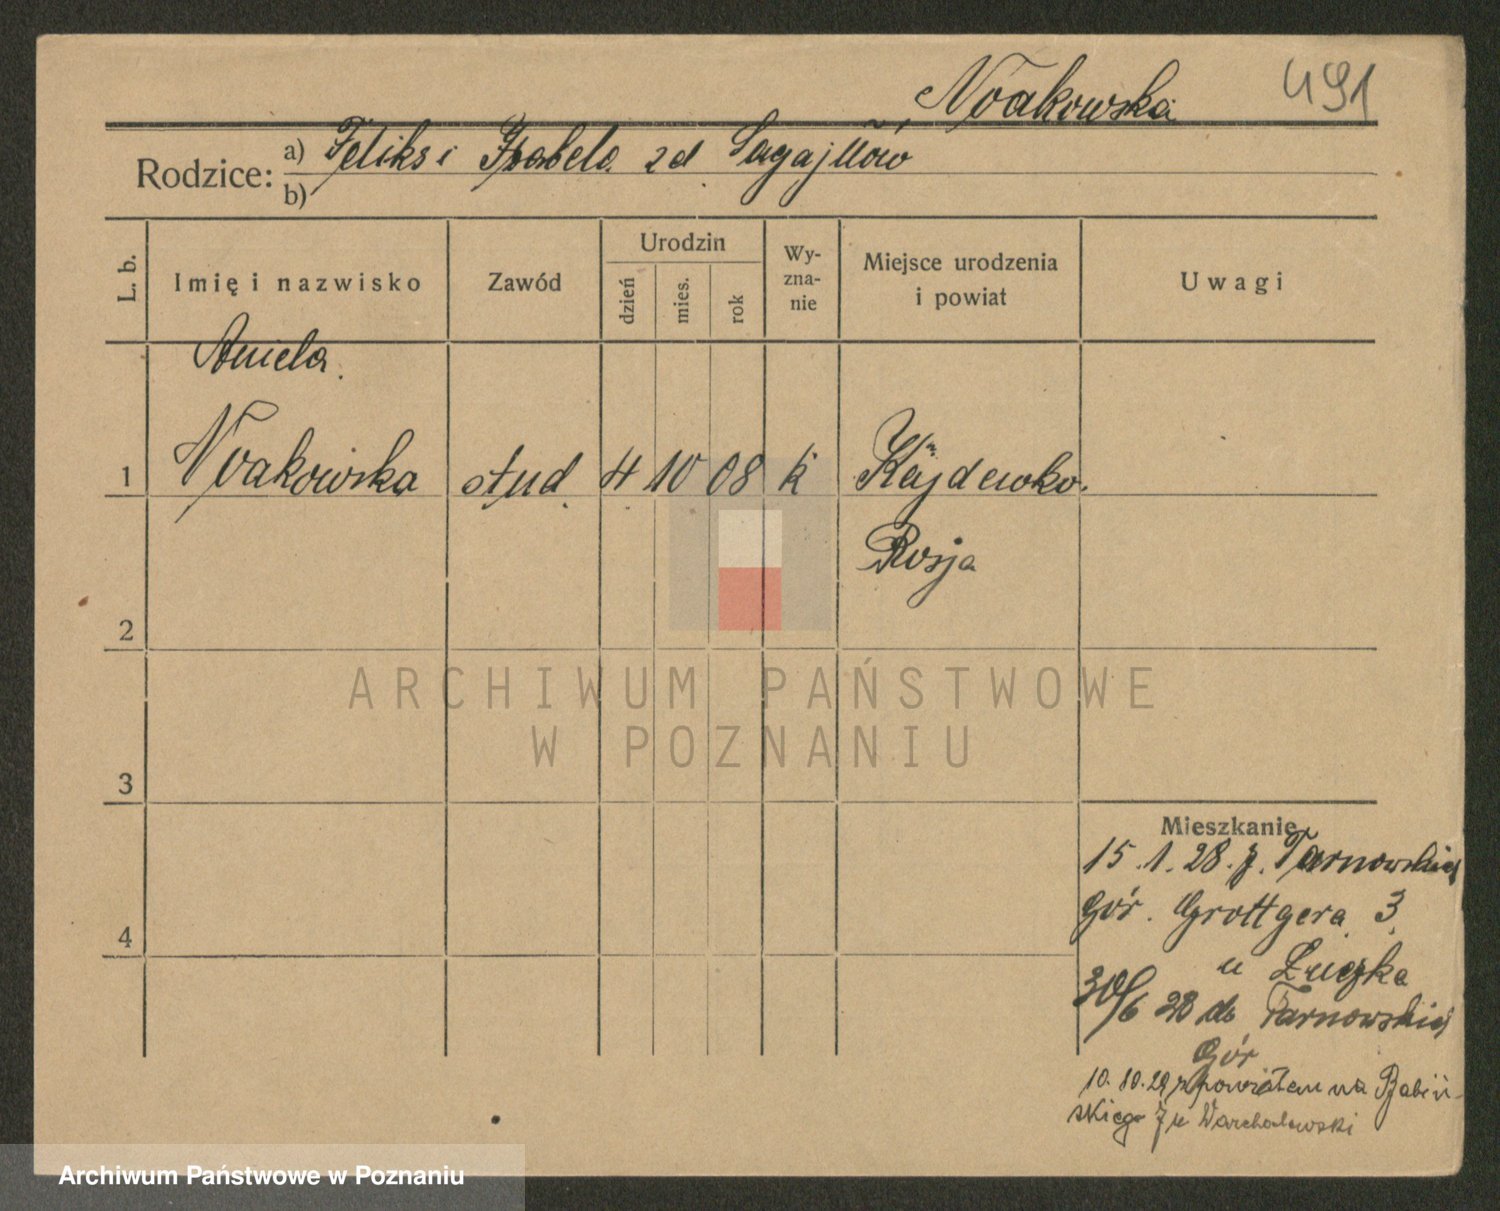 Noakowska
491
Rodzice: a) Feliks i Izabela zd Sagajłłów
b)
L. b.
Imię i nazwisko
Zawód
Urodzin
dzień
mies.
rok
Wy-
zna-
nie
Miejsce urodzenia
i powiat
Uwagi
Aniela
1 Noakowska stud. 4 10 08 k Kajdewko.
Rosja
2
3
4
Mieszkanie
15.1.28. z. Tarnowskich
Gór. Grottgera 3
u
30/6 28 do Tarnowskich
Gór
10.10.29 z powrotem na Babiń-
skiego 7 u Warchalowski
ARCHIWUM PAŃSTWOWE
W POZNANIU
Archiwum Państwowe w Poznaniu